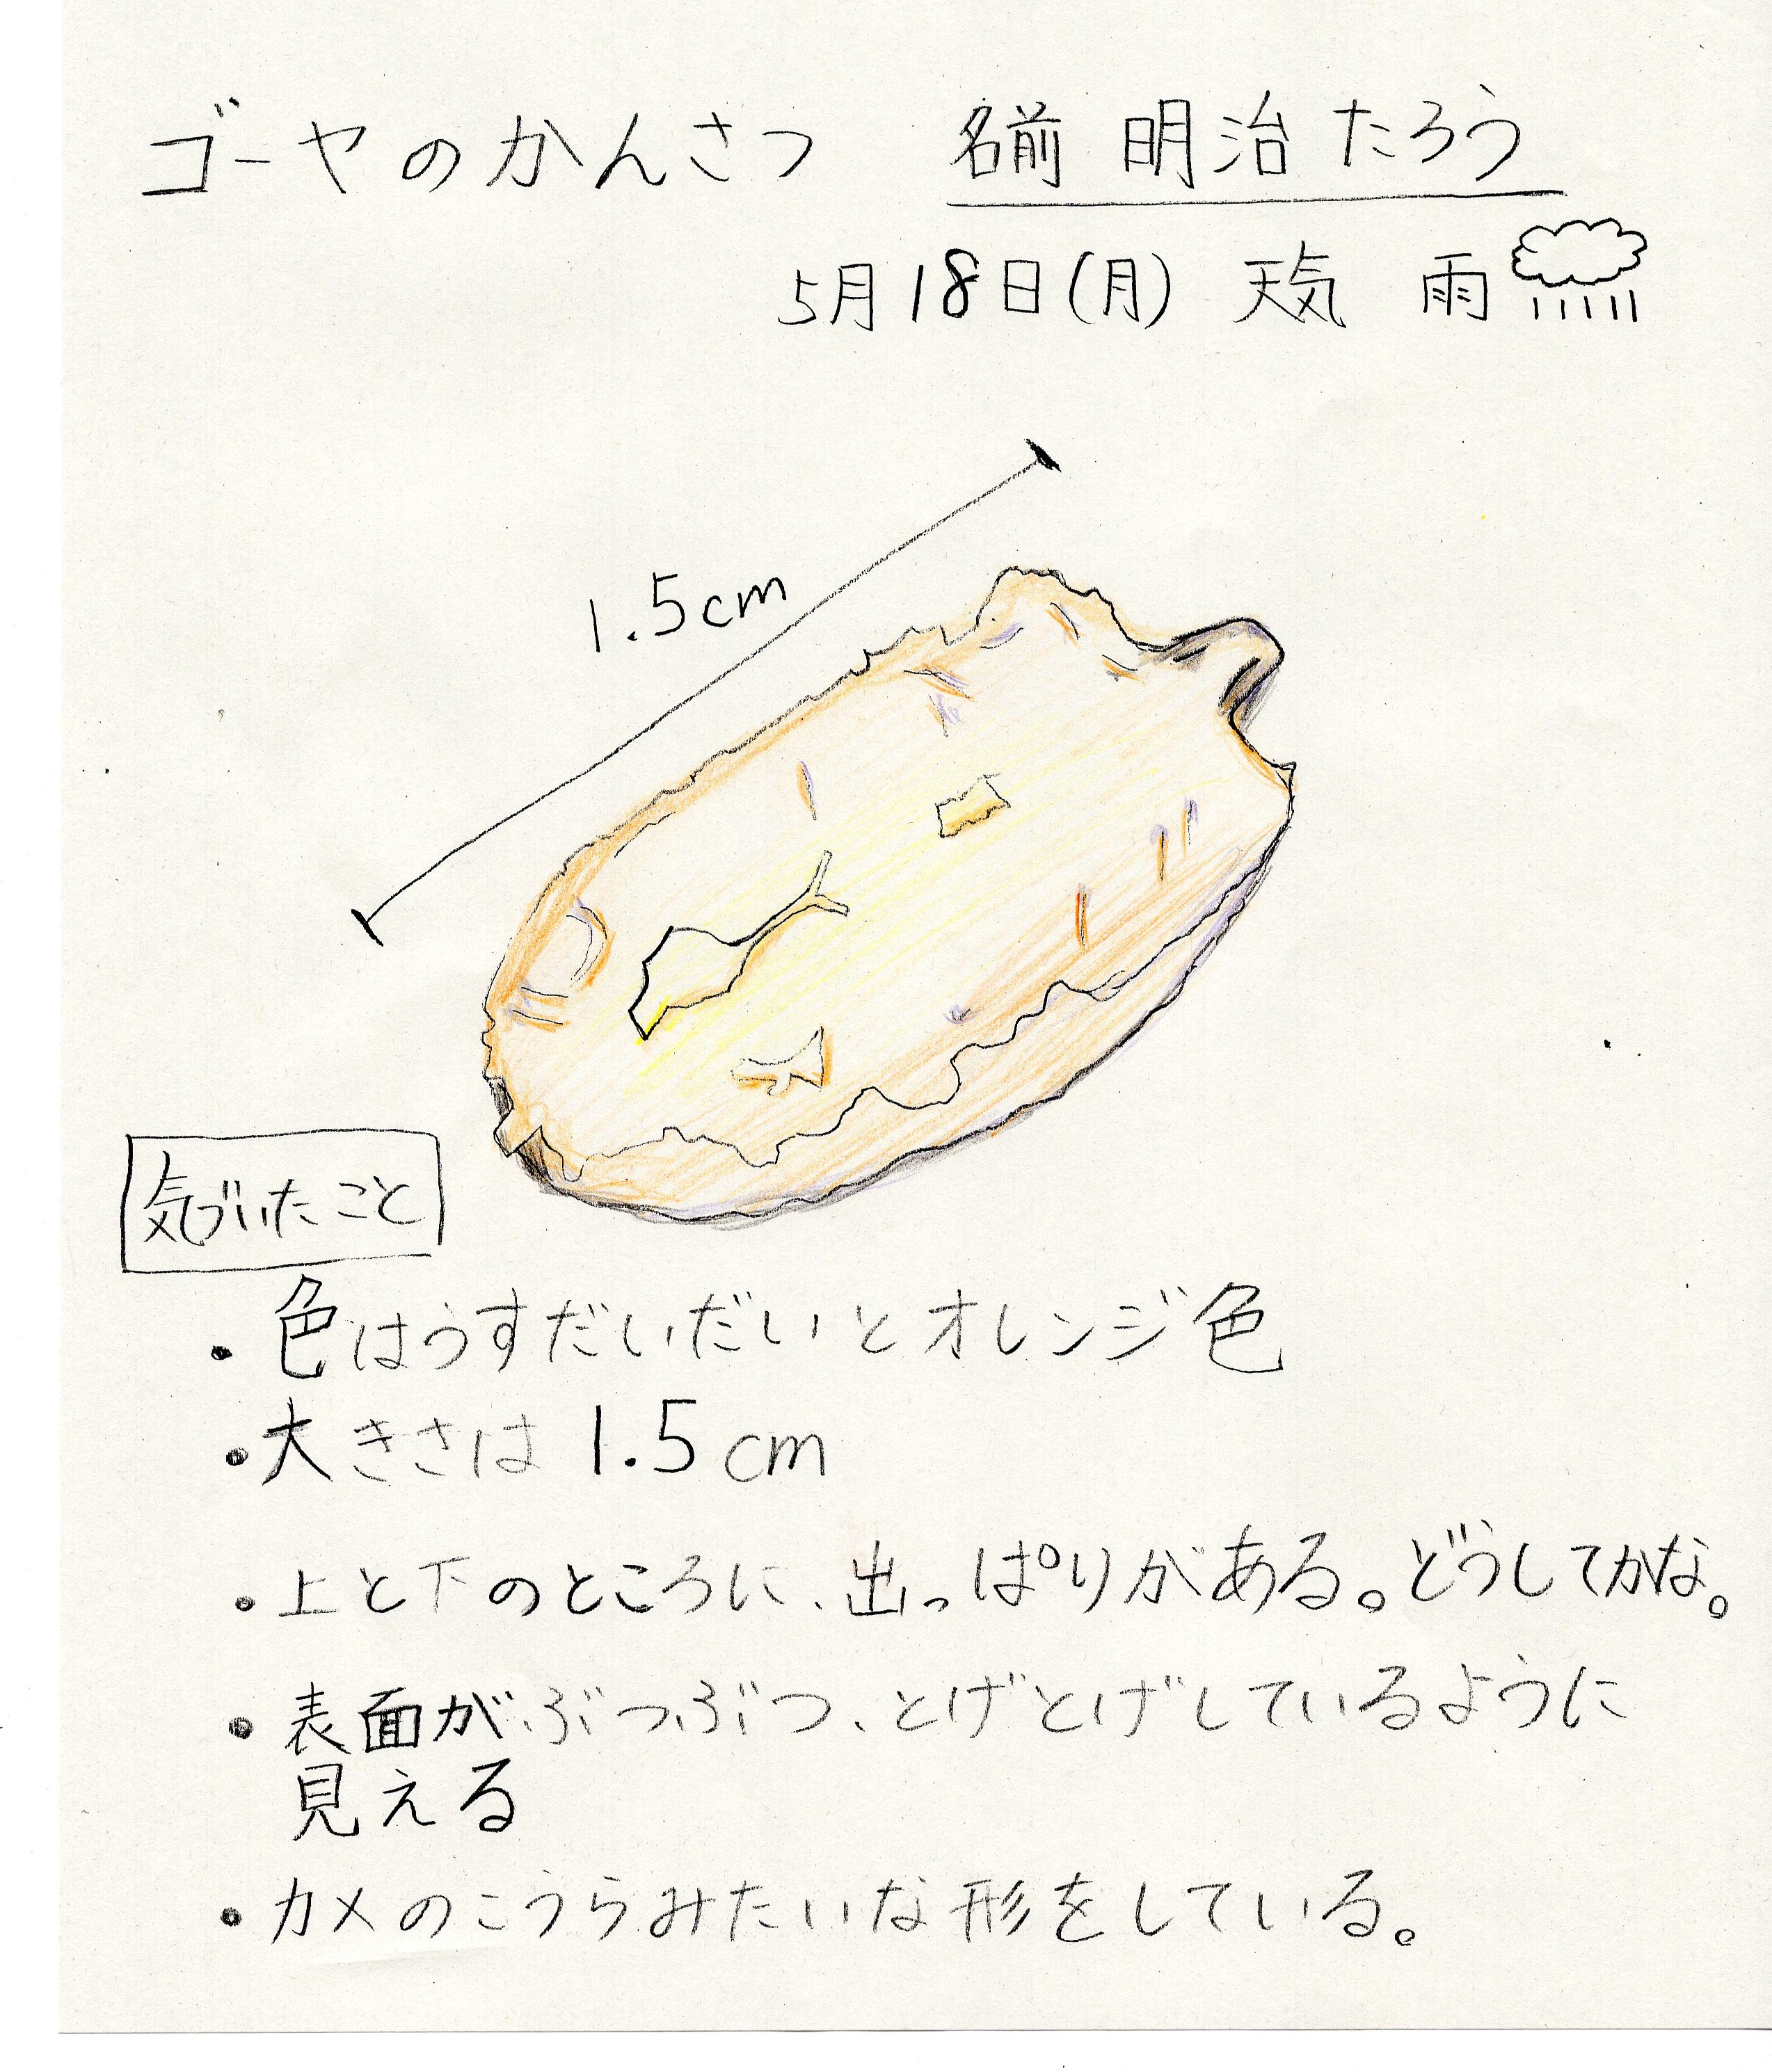 ゴーヤのかんさつ 名前 明治たろう
5月18日(月) 天気 雨
1.5cm
気づいたこと
・色はうすだいだいとオレンジ色
・大きさは1.5cm
・上と下のところに、出っぱりがある。どうしてかな。
・表面がぶつぶつ、とげとげしているように
見える
・カメのこうらみたいな形をしている。